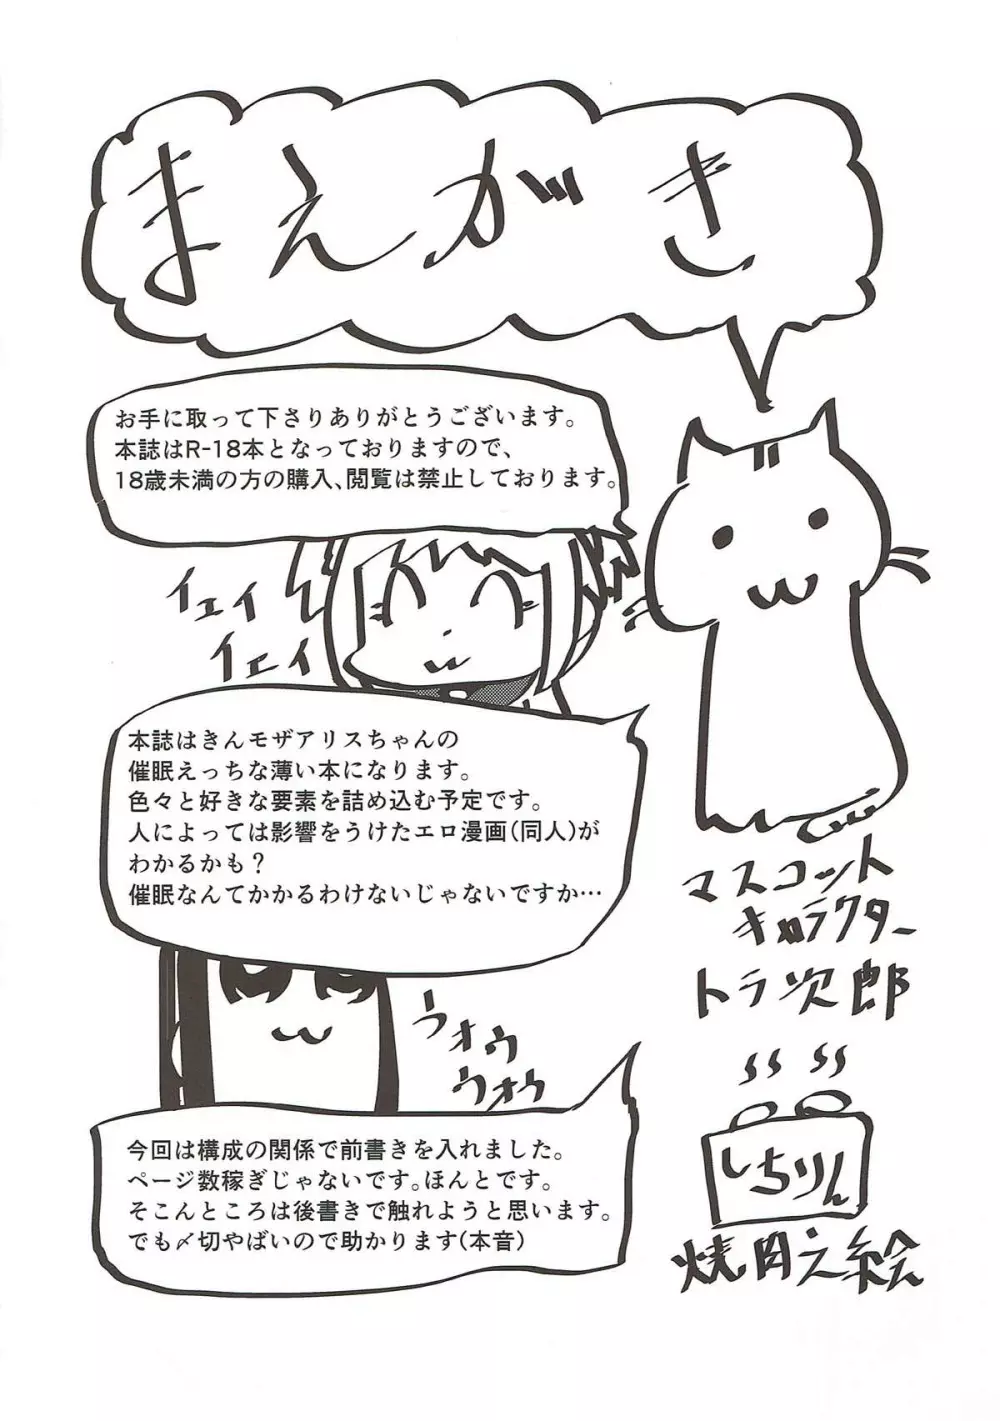 まえがき
お手に取って下さりありがとうございます。
本誌はR-18本となっておりますので、
18歳未満の方の購入、閲覧は禁止しております。
イェイ
イェイ
本誌はきんモザアリスちゃんの
催眠えっちな薄い本になります。
色々と好きな要素を詰め込む予定です。
人によっては影響をうけたエロ漫画(同人)が
わかるかも？
催眠なんてかかるわけないじゃないですか…
マスコット
キャラクター
トラ次郎
ウォウ
ウォウ
今回は構成の関係で前書きを入れました。
ページ数稼ぎじゃないです。ほんとです。
そこんところは後書きで触れようと思います。
でも〆切やばいので助かります(本音)
しちりん
焼肉之絵